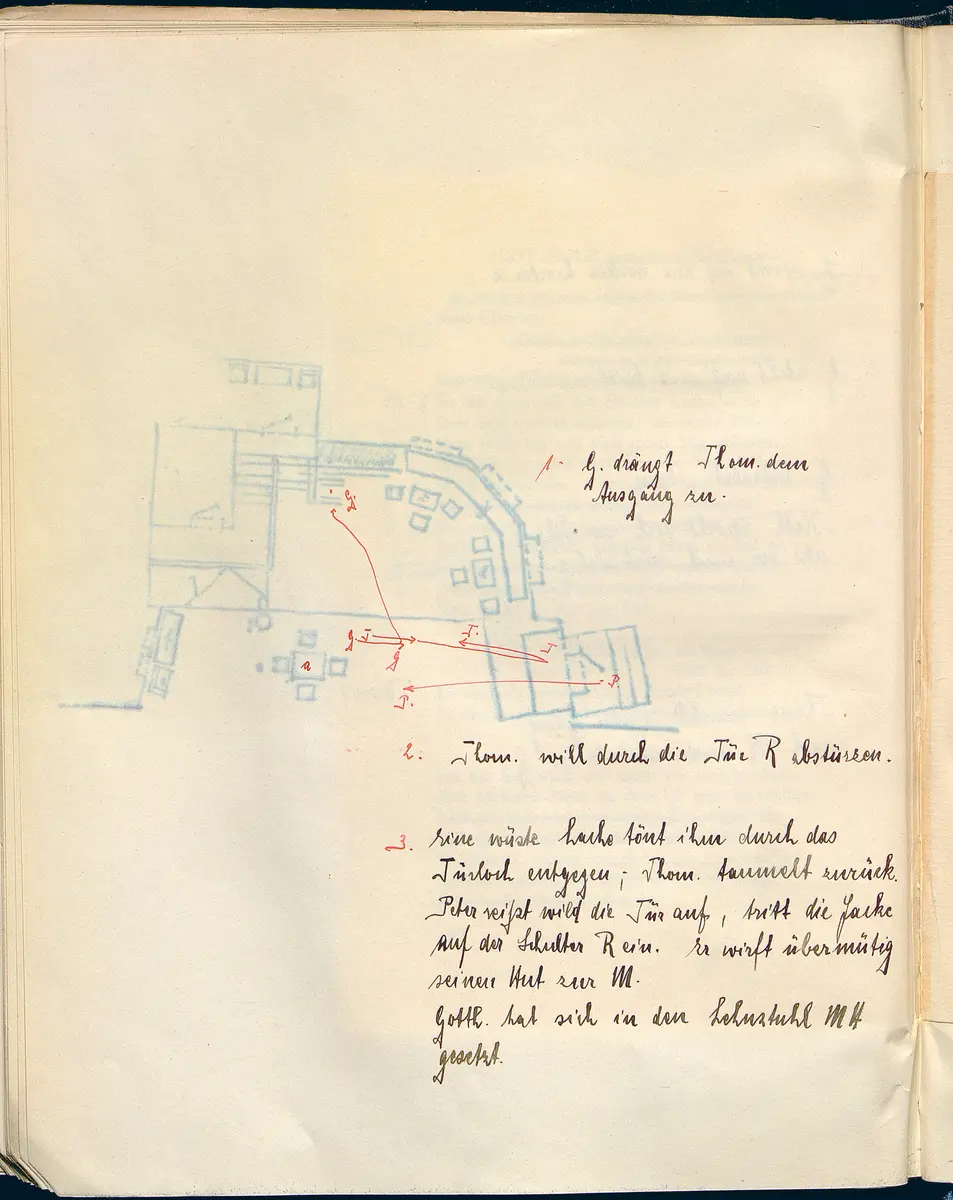 1. G. drängt Thom. dem
Ausgang zu.
G.
G. T
G.
T.
T
a
P.
P.
2. Thom. will durch die Tür R abstürzen.
3. Eine wüste Lache tönt ihm durch das
Türloch entgegen; Thom. taumelt zurück.
Peter reißt wild die Tür auf, tritt die Jacke
auf der Schulter R ein. Er wirft übermütig
seinen Hut zur M.
Gotth. hat sich in den Lehnstuhl MH
gesetzt.